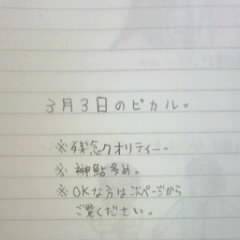 3月3日のピカル。
※残念クオリティー。
※ 多め。
※OKな方は次ページから
ご覧ください。